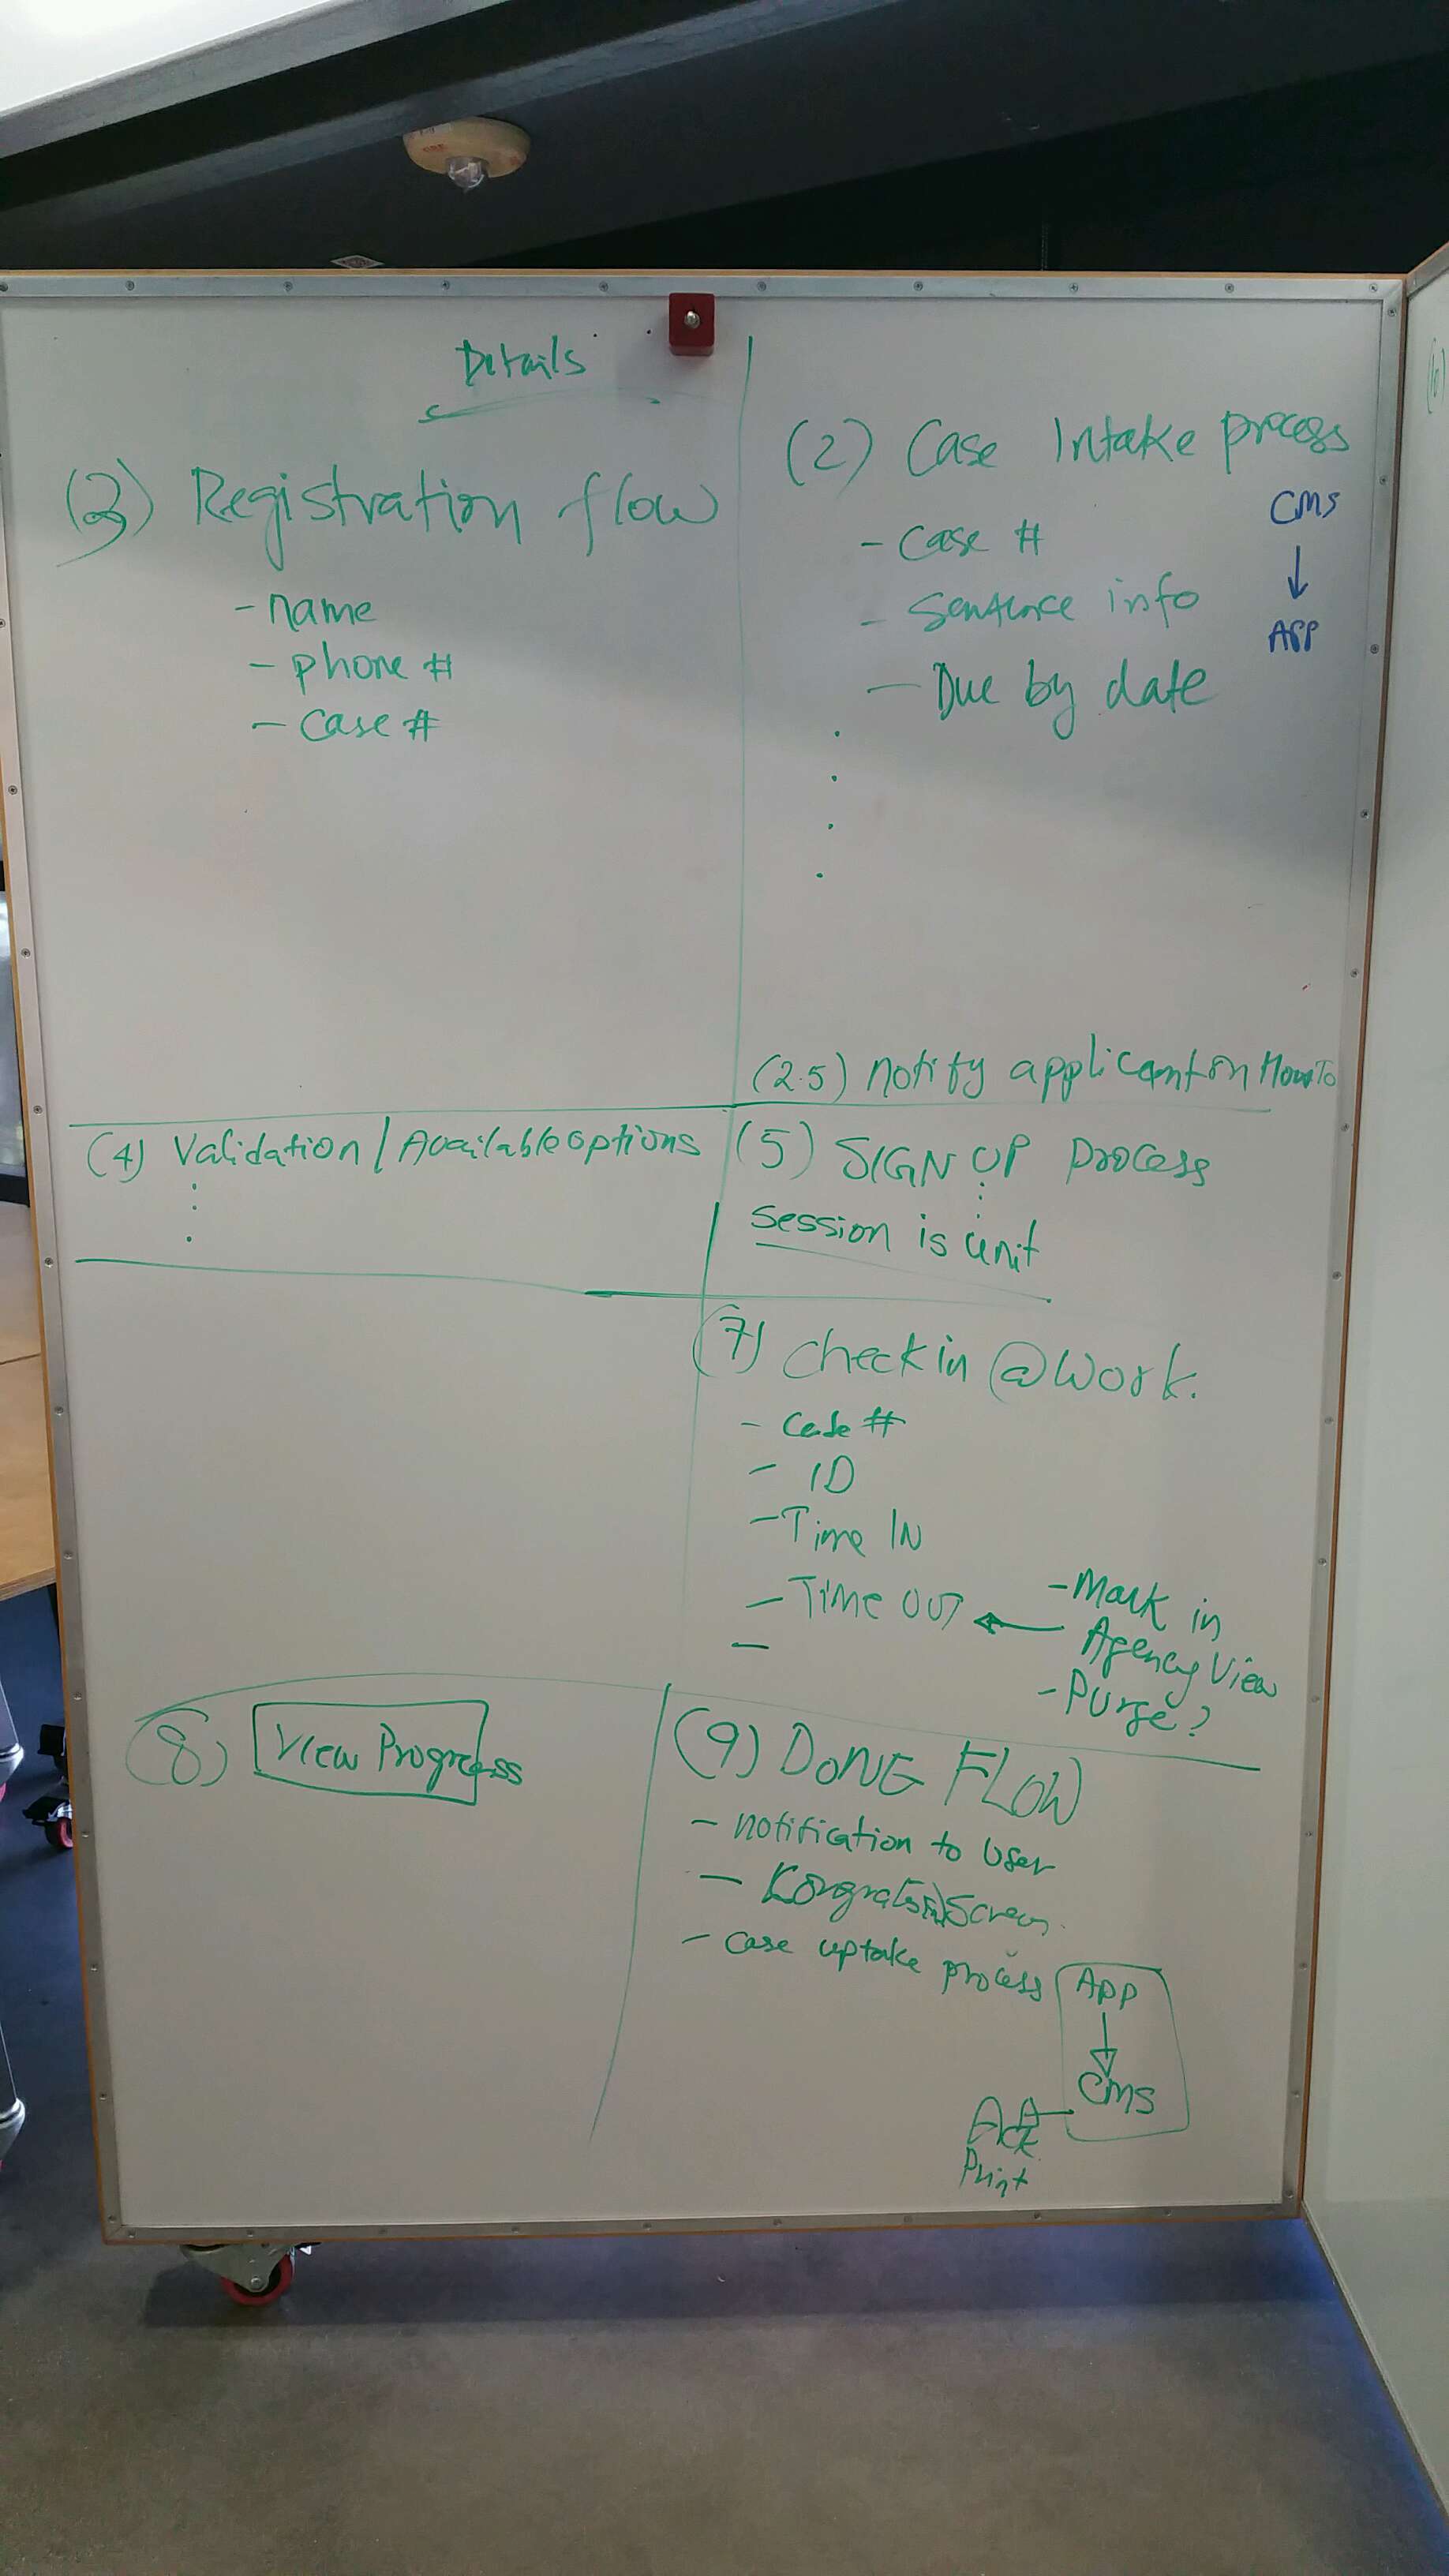 Details
(3) Registration flow
- name
- phone #
- case #
(2) Case Intake process
- case #
- Sentence info
- Due by date
CMS
↓
APP
(2.5) notify applicant on How To
(4) Validation / Available options
(5) SIGN UP process
session is unit
(7) check in @ work.
- case #
- ID
- Time IN
- Time OUT ←
- Mark in
Agency View
- Purge?
(8) View Progress
(9) DONE FLOW
- notification to User
- Screen
- case uptake process
App
↓
CMS
Print